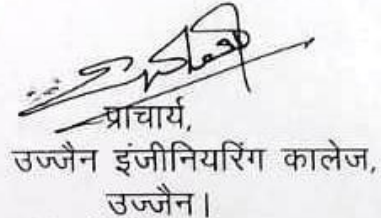 प्राचार्य,
उज्जैन इंजीनियरिंग कालेज,
उज्जैन।